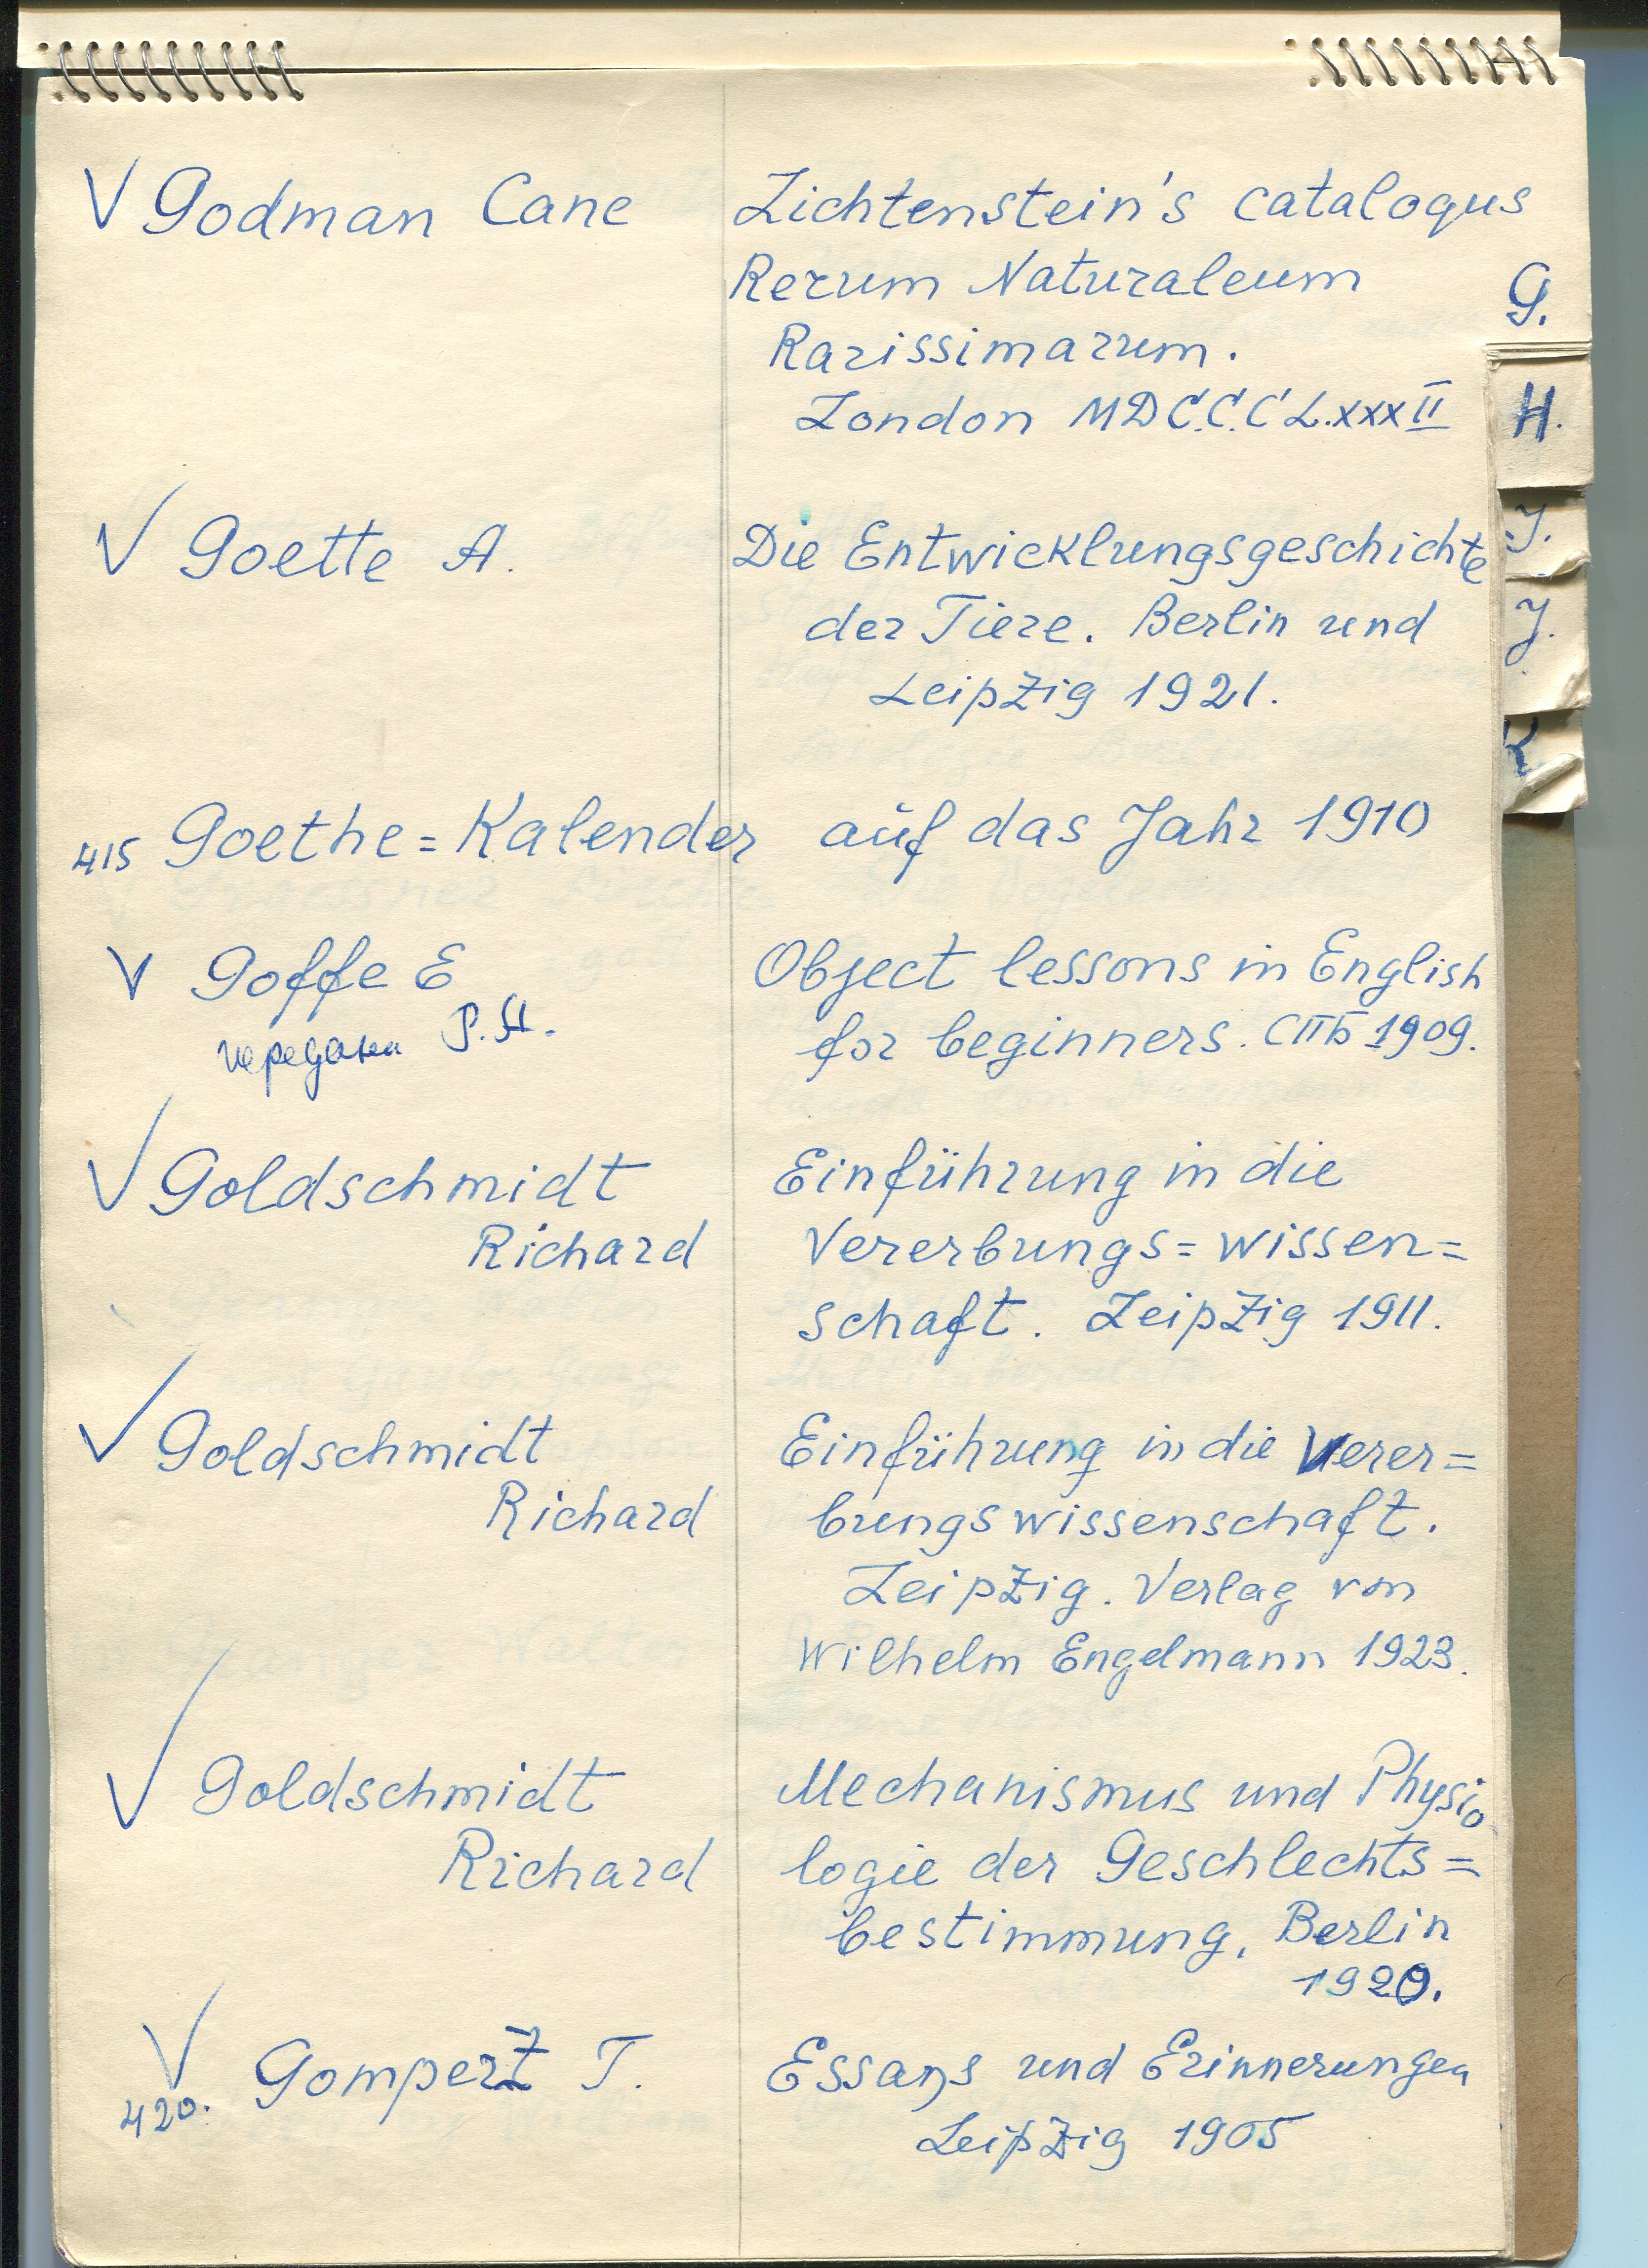 V Godman Cane Lichtenstein's catalogus
Rerum Naturaleum
G.
Rarissimarum.
London MDCCCLXXXII
H.
V Goette A. Die Entwicklungsgeschichte
J.
der Tiere. Berlin und
J.
Leipzig 1921.
K
415 Goethe = Kalender auf das Jahr 1910
V Goffe E Object lessons in English
передана Р.Я. for beginners. СПБ 1909.
V Goldschmidt Einführung in die
Richard Vererbungs = wissen =
schaft. Leipzig 1911.
V Goldschmidt Einführung in die Verer =
Richard bungswissenschaft.
Leipzig. Verlag von
Wilhelm Engelmann 1923.
V Goldschmidt Mechanismus und Physio
Richard logie der Geschlechts =
bestimmung, Berlin
1920.
V Gomperz T. Essays und Erinnerungen
420. Leipzig 1905